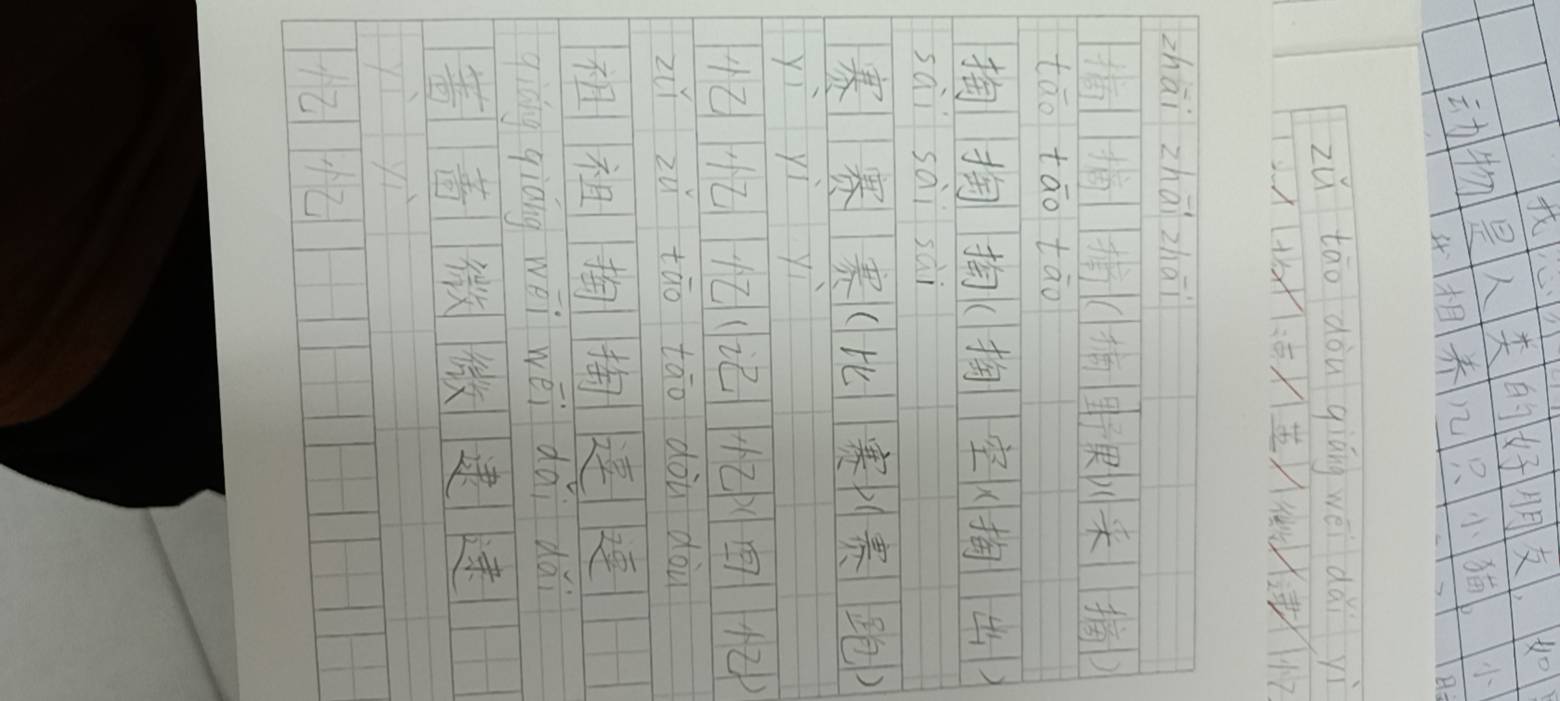 zhāi zhāi zhāi
摘摘摘(摘野果)(采摘)
tāo tāo tāo
掏掏掏(掏空)(掏出)
sāi sāi sāi
塞塞塞(比塞)(塞跑)
yì yì yì
忆忆忆(记忆)(回忆)
zǔ zǔ tāo tāo dòu dòu
祖祖掏掏逗逗
qiáng qiáng wēi wēi dǎi dǎi
蔷蔷微微逮逮
yì yì
忆忆
zǔ tāo dòu qiáng wēi dǎi yì
动物是人类的好朋友,